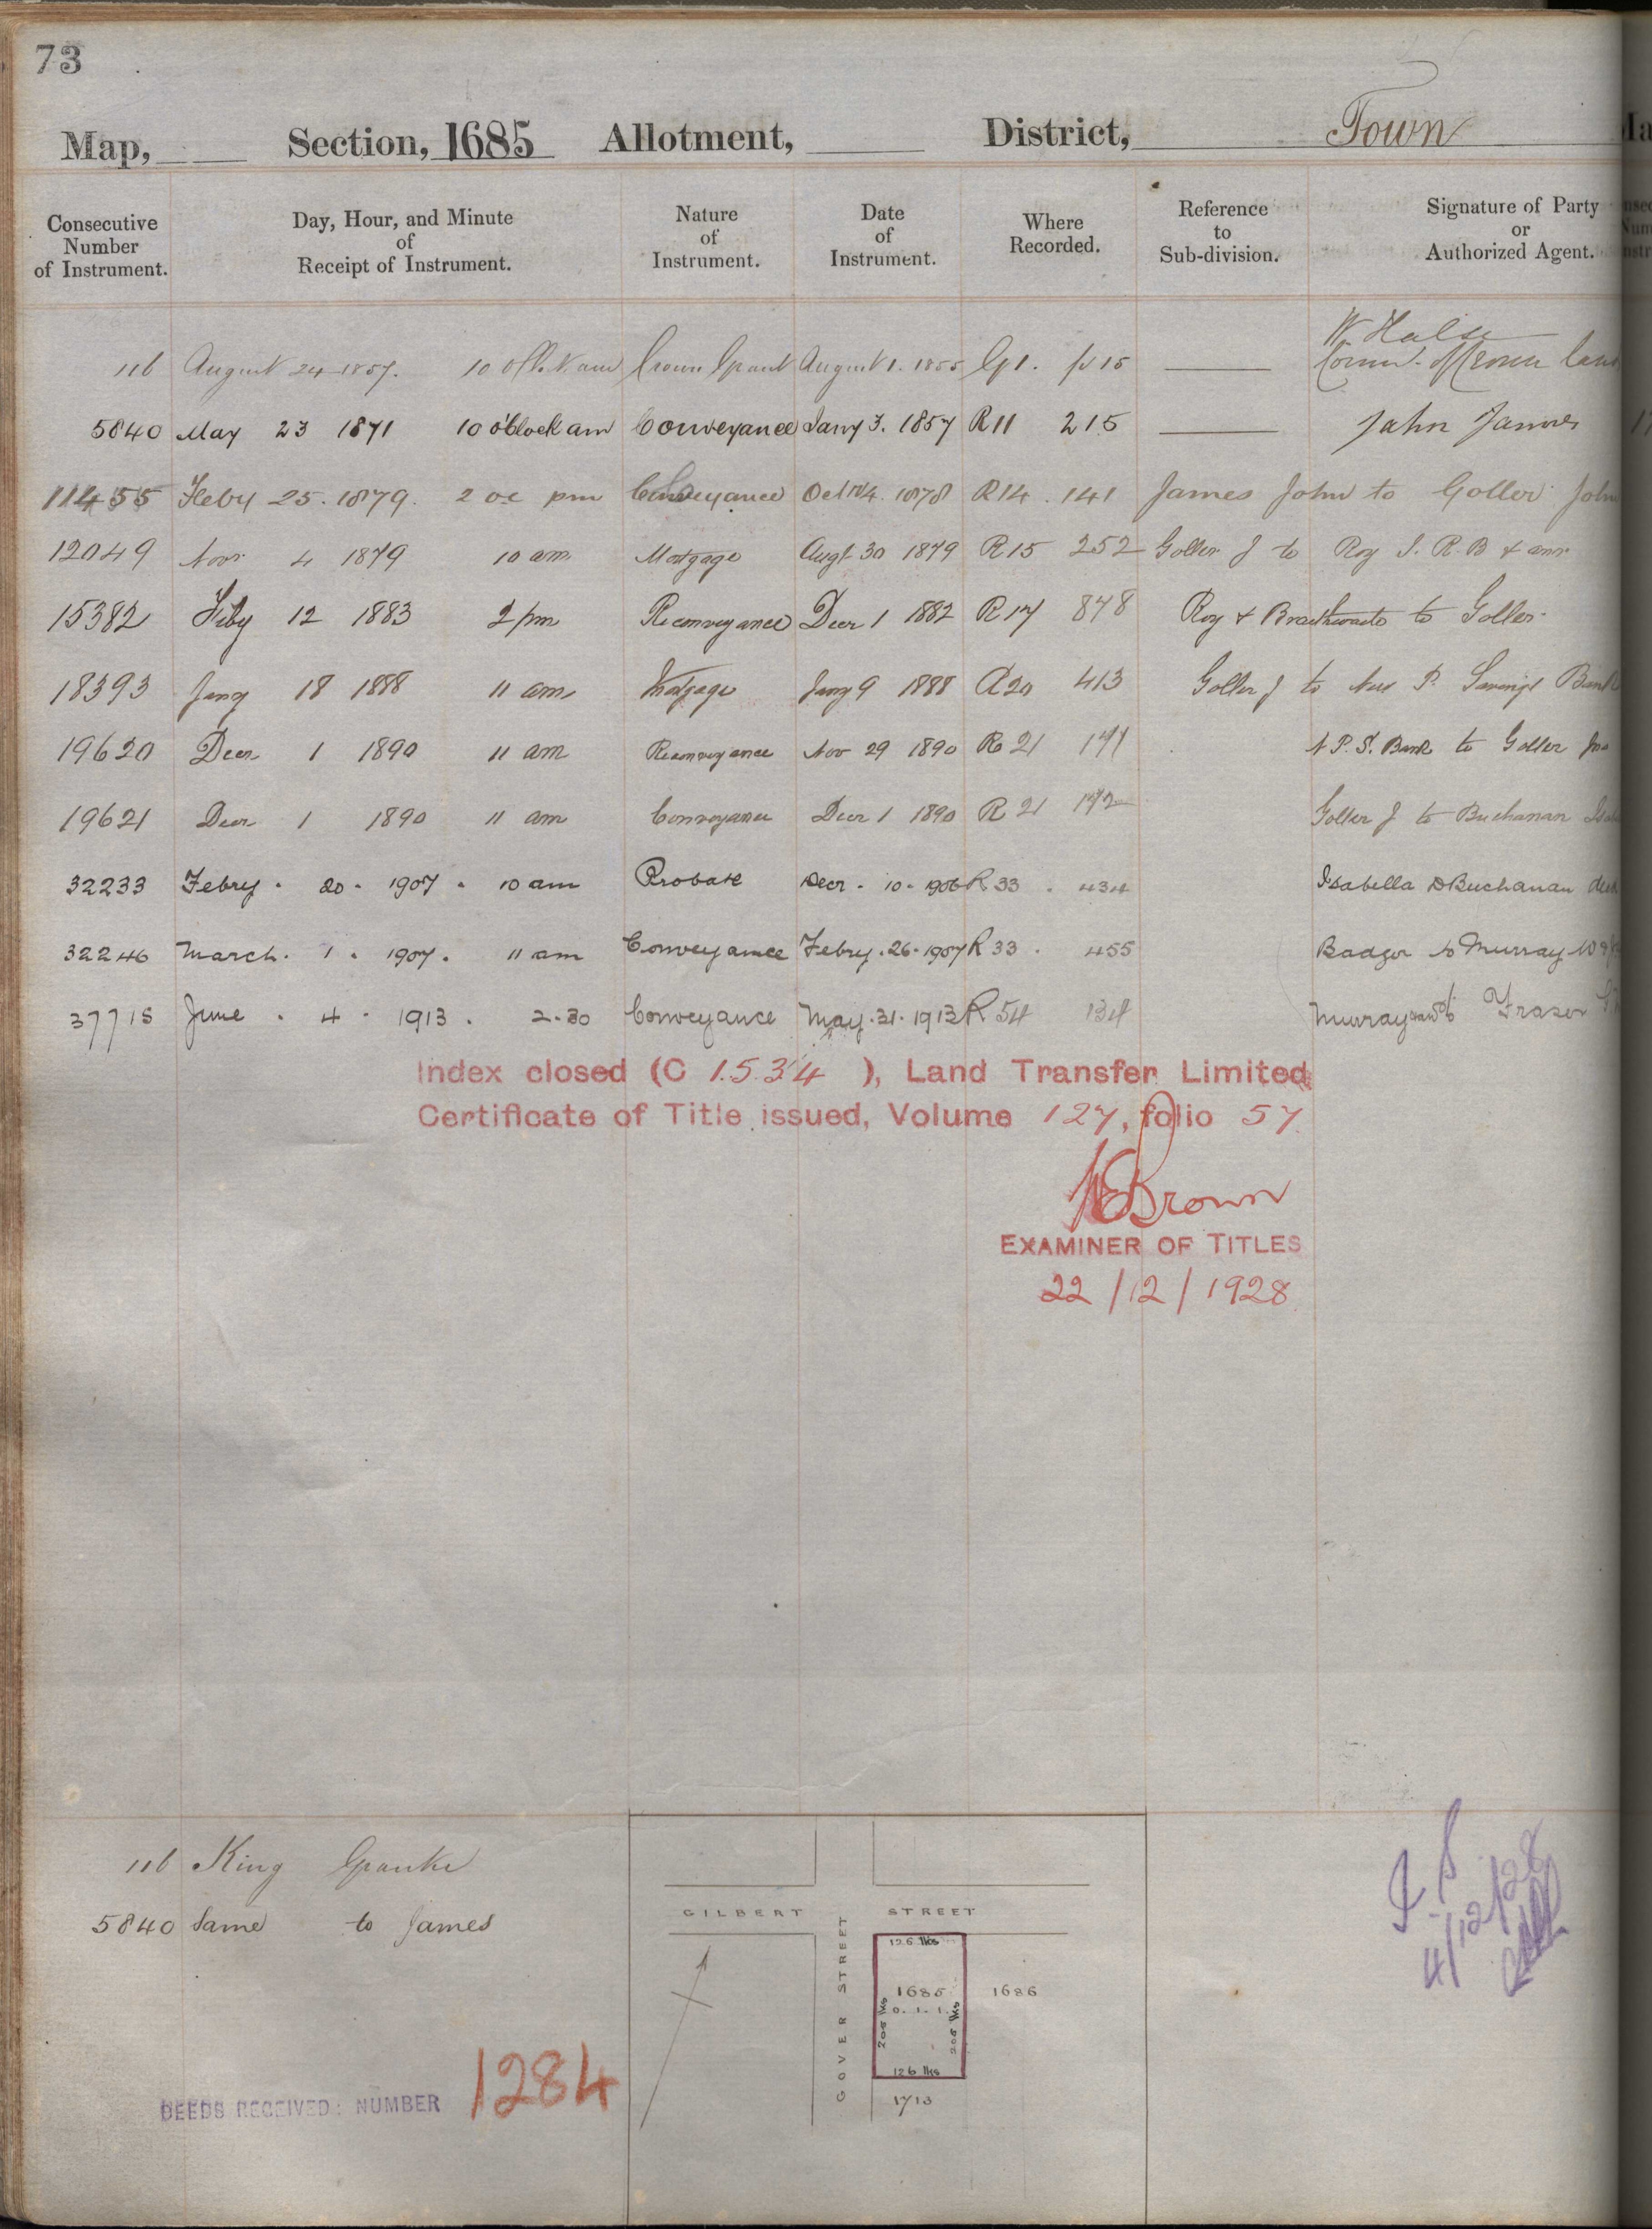 73
Map, Section, 1685 Allotment, District, Town
Consecutive Number of Instrument. Day, Hour, and Minute of Receipt of Instrument. Nature of Instrument. Date of Instrument. Where Recorded. Reference to Sub-division. Signature of Party or Authorized Agent.
116 August 24 1857. 10 o'Clock am Crown Grant August 1. 1855 G1. p 15 W Halse
Comr. of Crown Lands
5840 May 23 1871 10 o'Clock am Conveyance Jany 3. 1857 R11 215 John James
11455 Feby 25. 1879. 2 oc pm Conveyance Oct 14. 1878 R14. 141 James John to Goller John
12049 Novr 4 1879 10 am Mortgage Augt 30 1879 R15 252 Goller J to Roy J. R. B & anr
15382 Feby 12 1883 2 pm Reconveyance Decr 1 1882 R17 878 Roy & Braithwaite to Goller
18393 Jany 18 1888 11 am Mortgage Jany 9 1888 R20 413 Goller J to New P. Savings Bank
19620 Decr 1 1890 11 am Reconveyance Nov 29 1890 R 21 171 N P. S. Bank to Goller Jno
19621 Decr 1 1890 11 am Conveyance Decr 1 1890 R 21 172 Goller J to Buchanan
32233 Febry. 20. 1907. 10 am Probate Decr. 10. 1906 R 33. 434 Isabella D Buchanan decd
32246 March. 1. 1907. 11 am Conveyance Febry. 26. 1907 R 33. 455 Badger to Murray
37715 June. 4. 1913. 2.30 Conveyance May. 31. 1913 R 54 134 Murray to Fraser
Index closed (C 1534 ), Land Transfer Limited
Certificate of Title issued, Volume 127, folio 57.
Brown
EXAMINER OF TITLES
22/12/1928.
116 King Grantee
5840 Same to James
GILBERT STREET
GOVER STREET
126 lks
1685
0. 1. 1.
205 lks
205 lks
126 lks
1686
1713
4/12/28
DEEDS RECEIVED: NUMBER 1284